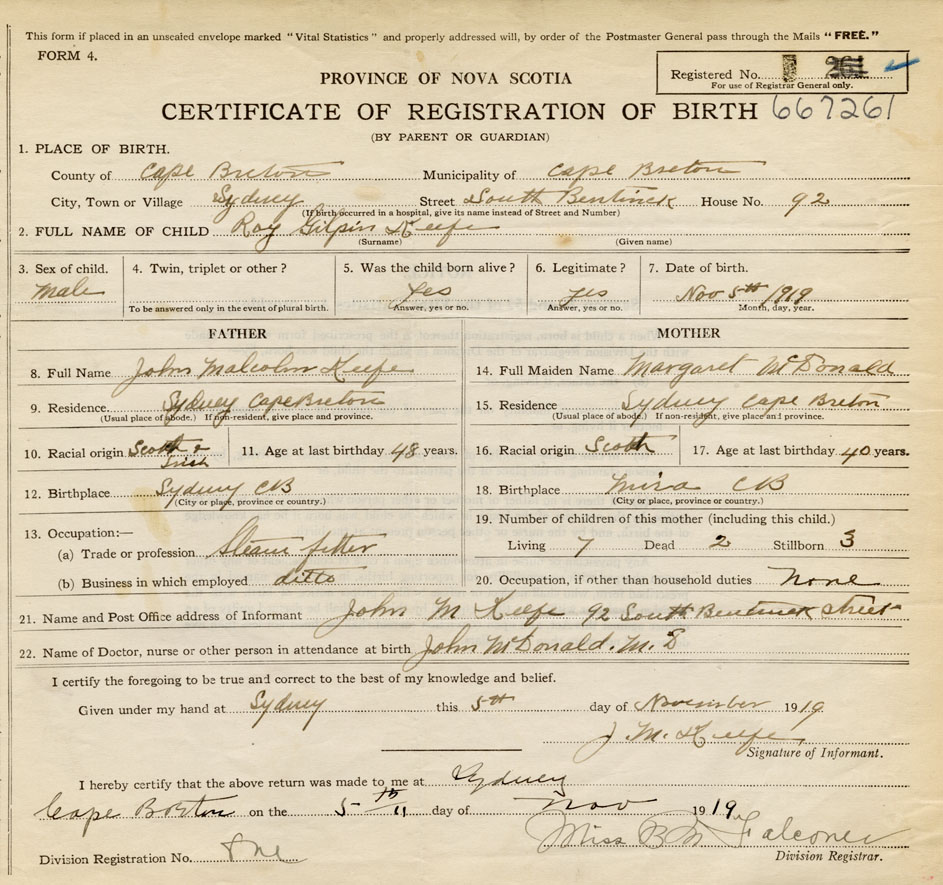 This form if placed in an unsealed envelope marked "Vital Statistics" and properly addressed will, by order of the Postmaster General pass through the Mails "FREE."
FORM 4.
Registered No. 261
For use of Registrar General only.
PROVINCE OF NOVA SCOTIA
CERTIFICATE OF REGISTRATION OF BIRTH 667261
(BY PARENT OR GUARDIAN)
1. PLACE OF BIRTH.
County of Cape Breton Municipality of Cape Breton
City, Town or Village Sydney Street South Bentinck House No. 92
(If birth occurred in a hospital, give its name instead of Street and Number)
2. FULL NAME OF CHILD Roy Gilpin Keefe
(Surname) (Given name)
3. Sex of child. 4. Twin, triplet or other? 5. Was the child born alive? 6. Legitimate? 7. Date of birth.
Male Yes yes Nov 5th 1919
To be answered only in the event of plural birth. Answer, yes or no. Answer, yes or no. Month, day, year.
FATHER MOTHER
8. Full Name John Malcolm Keefe 14. Full Maiden Name Margaret McDonald
9. Residence Sydney Cape Breton 15. Residence Sydney Cape Breton
(Usual place of abode.) If non-resident, give place and province. (Usual place of abode.) If non-resident, give place and province.
10. Racial origin Scotch & Irish 11. Age at last birthday 48 years. 16. Racial origin Scotch 17. Age at last birthday 40 years.
12. Birthplace Sydney CB 18. Birthplace Mira CB
(City or place, province or country.) (City or place, province or country.)
13. Occupation:— 19. Number of children of this mother (including this child.)
(a) Trade or profession Steam fitter Living 7 Dead 2 Stillborn 3
(b) Business in which employed ditto 20. Occupation, if other than household duties None
21. Name and Post Office address of Informant John M Keefe 92 South Bentinck Street
22. Name of Doctor, nurse or other person in attendance at birth John McDonald. M.D
I certify the foregoing to be true and correct to the best of my knowledge and belief.
Given under my hand at Sydney this 5th day of November 1919
J. M. Keefe
Signature of Informant.
I hereby certify that the above return was made to me at Sydney
Cape Breton on the 5th 11 day of Nov 1919
Miss B M Falconer
Division Registrar.
Division Registration No. One